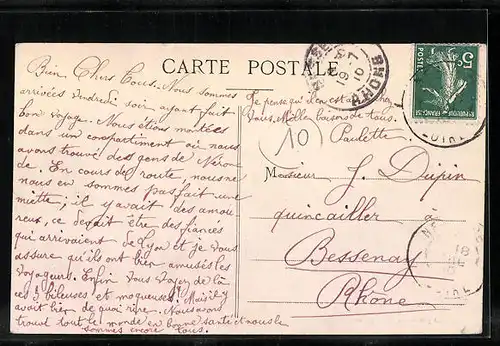 CARTE POSTALE
Bien Chers Tous. Nous sommes
arrivées Vendredi soir ayant fait
bon voyage. Nous étions montées
dans un compartiment où nous
avons trouvé des gens de Néron
de. En cours de route, nous ne
nous en sommes pas fait une
miette; il y avait des amou
reux, ce devait être des fiancés
qui arrivaient de Lyon et je vous
assure qu'ils ont bien amusés les
voyageurs. Enfin vous voyez de là
ces 3 bileuses et moqueuses! Mais il y
avait bien de quoi rire. Nous avons
trouvé tout le monde en bonne santé et nous le
sommes encore tous.
Je pense qu'il en est de même chez
vous. Mille baisers de tous.
Paulette
10
Monsieur J. Dupin
quincailler à
Bessenay
Rhône
5c
POSTES
REPUBLIQUE FRANÇAISE
RHONE